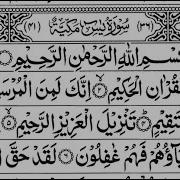 (٣٦) سُوْرَةُ يٰسٓ مَكِّيَّةٌ (٤١)
سْمِ اللّٰهِ الرَّحْمٰنِ الرَّحِيْمِ
قُرْاٰنِ الْحَكِيْمِ ۙ﴿٢﴾ اِنَّكَ لَمِنَ الْمُرْسَ
تَقِيْمٍ ؕ﴿٤﴾ تَنْزِيْلَ الْعَزِيْزِ الرَّحِيْمِ ۙ﴿٥﴾
بَآؤُهُمْ فَهُمْ غٰفِلُوْنَ ﴿٦﴾ لَقَدْ حَقَّ ا